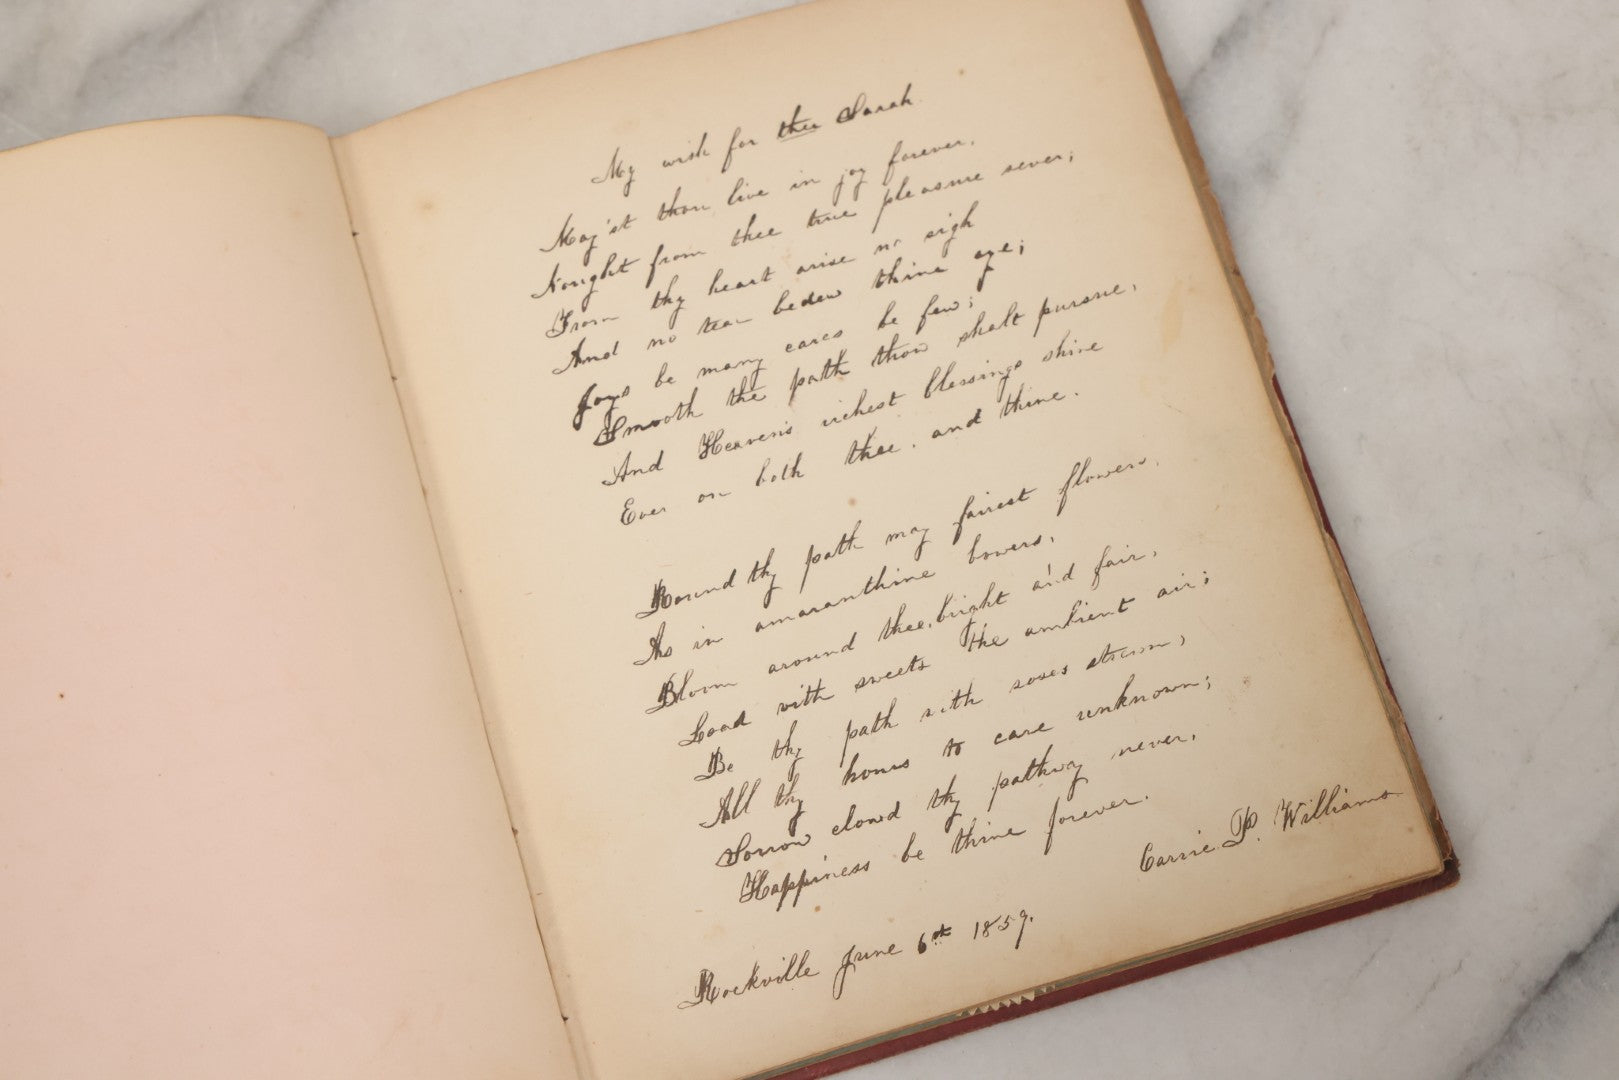 My wish for thee Sarah
May'st thou live in joy forever,
Nought from thee true pleasure sever;
From thy heart arise no sigh
And no tear bedew thine eye;
Joys be many cares be few;
Smooth the path thou shalt pursue,
And Heaven's richest blessings shine
Ever on both thee and thine.
Round thy path may fairest flowers,
As in amaranthine bowers,
Bloom around thee, bright and fair,
Load with sweets the ambient air;
Be thy path with roses strewn,
All thy hours to care unknown;
Sorrow cloud thy pathway never,
Happiness be thine forever.
Carrie P. Williams
Rockville June 6th 1859.